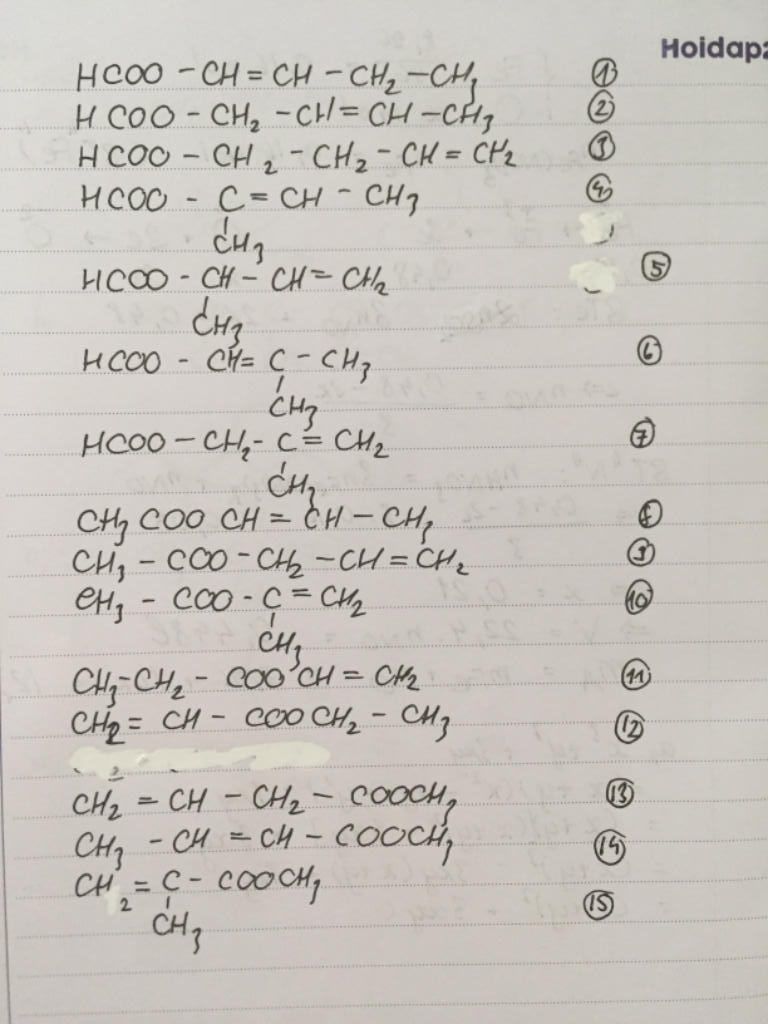 Hoidap2
HCOO - CH = CH - CH2 - CH3 ①
HCOO - CH2 - CH = CH - CH3 ②
HCOO - CH2 - CH2 - CH = CH2 ③
HCOO - C = CH - CH3 ④
CH3
HCOO - CH - CH = CH2 ⑤
CH3
HCOO - CH = C - CH3 ⑥
CH3
HCOO - CH2 - C = CH2 ⑦
CH3
CH3 COO CH = CH - CH3 ⑧
CH3 - COO - CH2 - CH = CH2 ⑨
CH3 - COO - C = CH2 ⑩
CH3
CH3 - CH2 - COO CH = CH2 ⑪
CH2 = CH - COO CH2 - CH3 ⑫
CH2 = CH - CH2 - COOCH3 ⑬
CH3 - CH = CH - COOCH3 ⑭
CH2 = C - COOCH3 ⑮
CH3